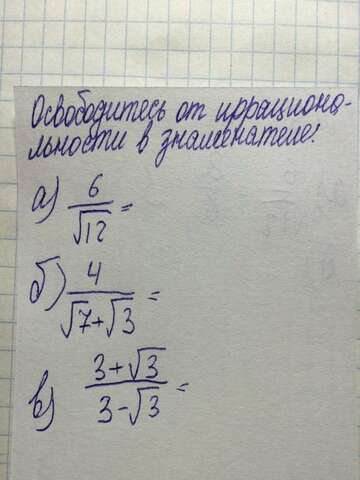 Освободитесь от иррациона-
льности в знаменателе:
а) 6/√12 =
б) 4/(√7+√3) =
в) (3+√3)/(3-√3) =